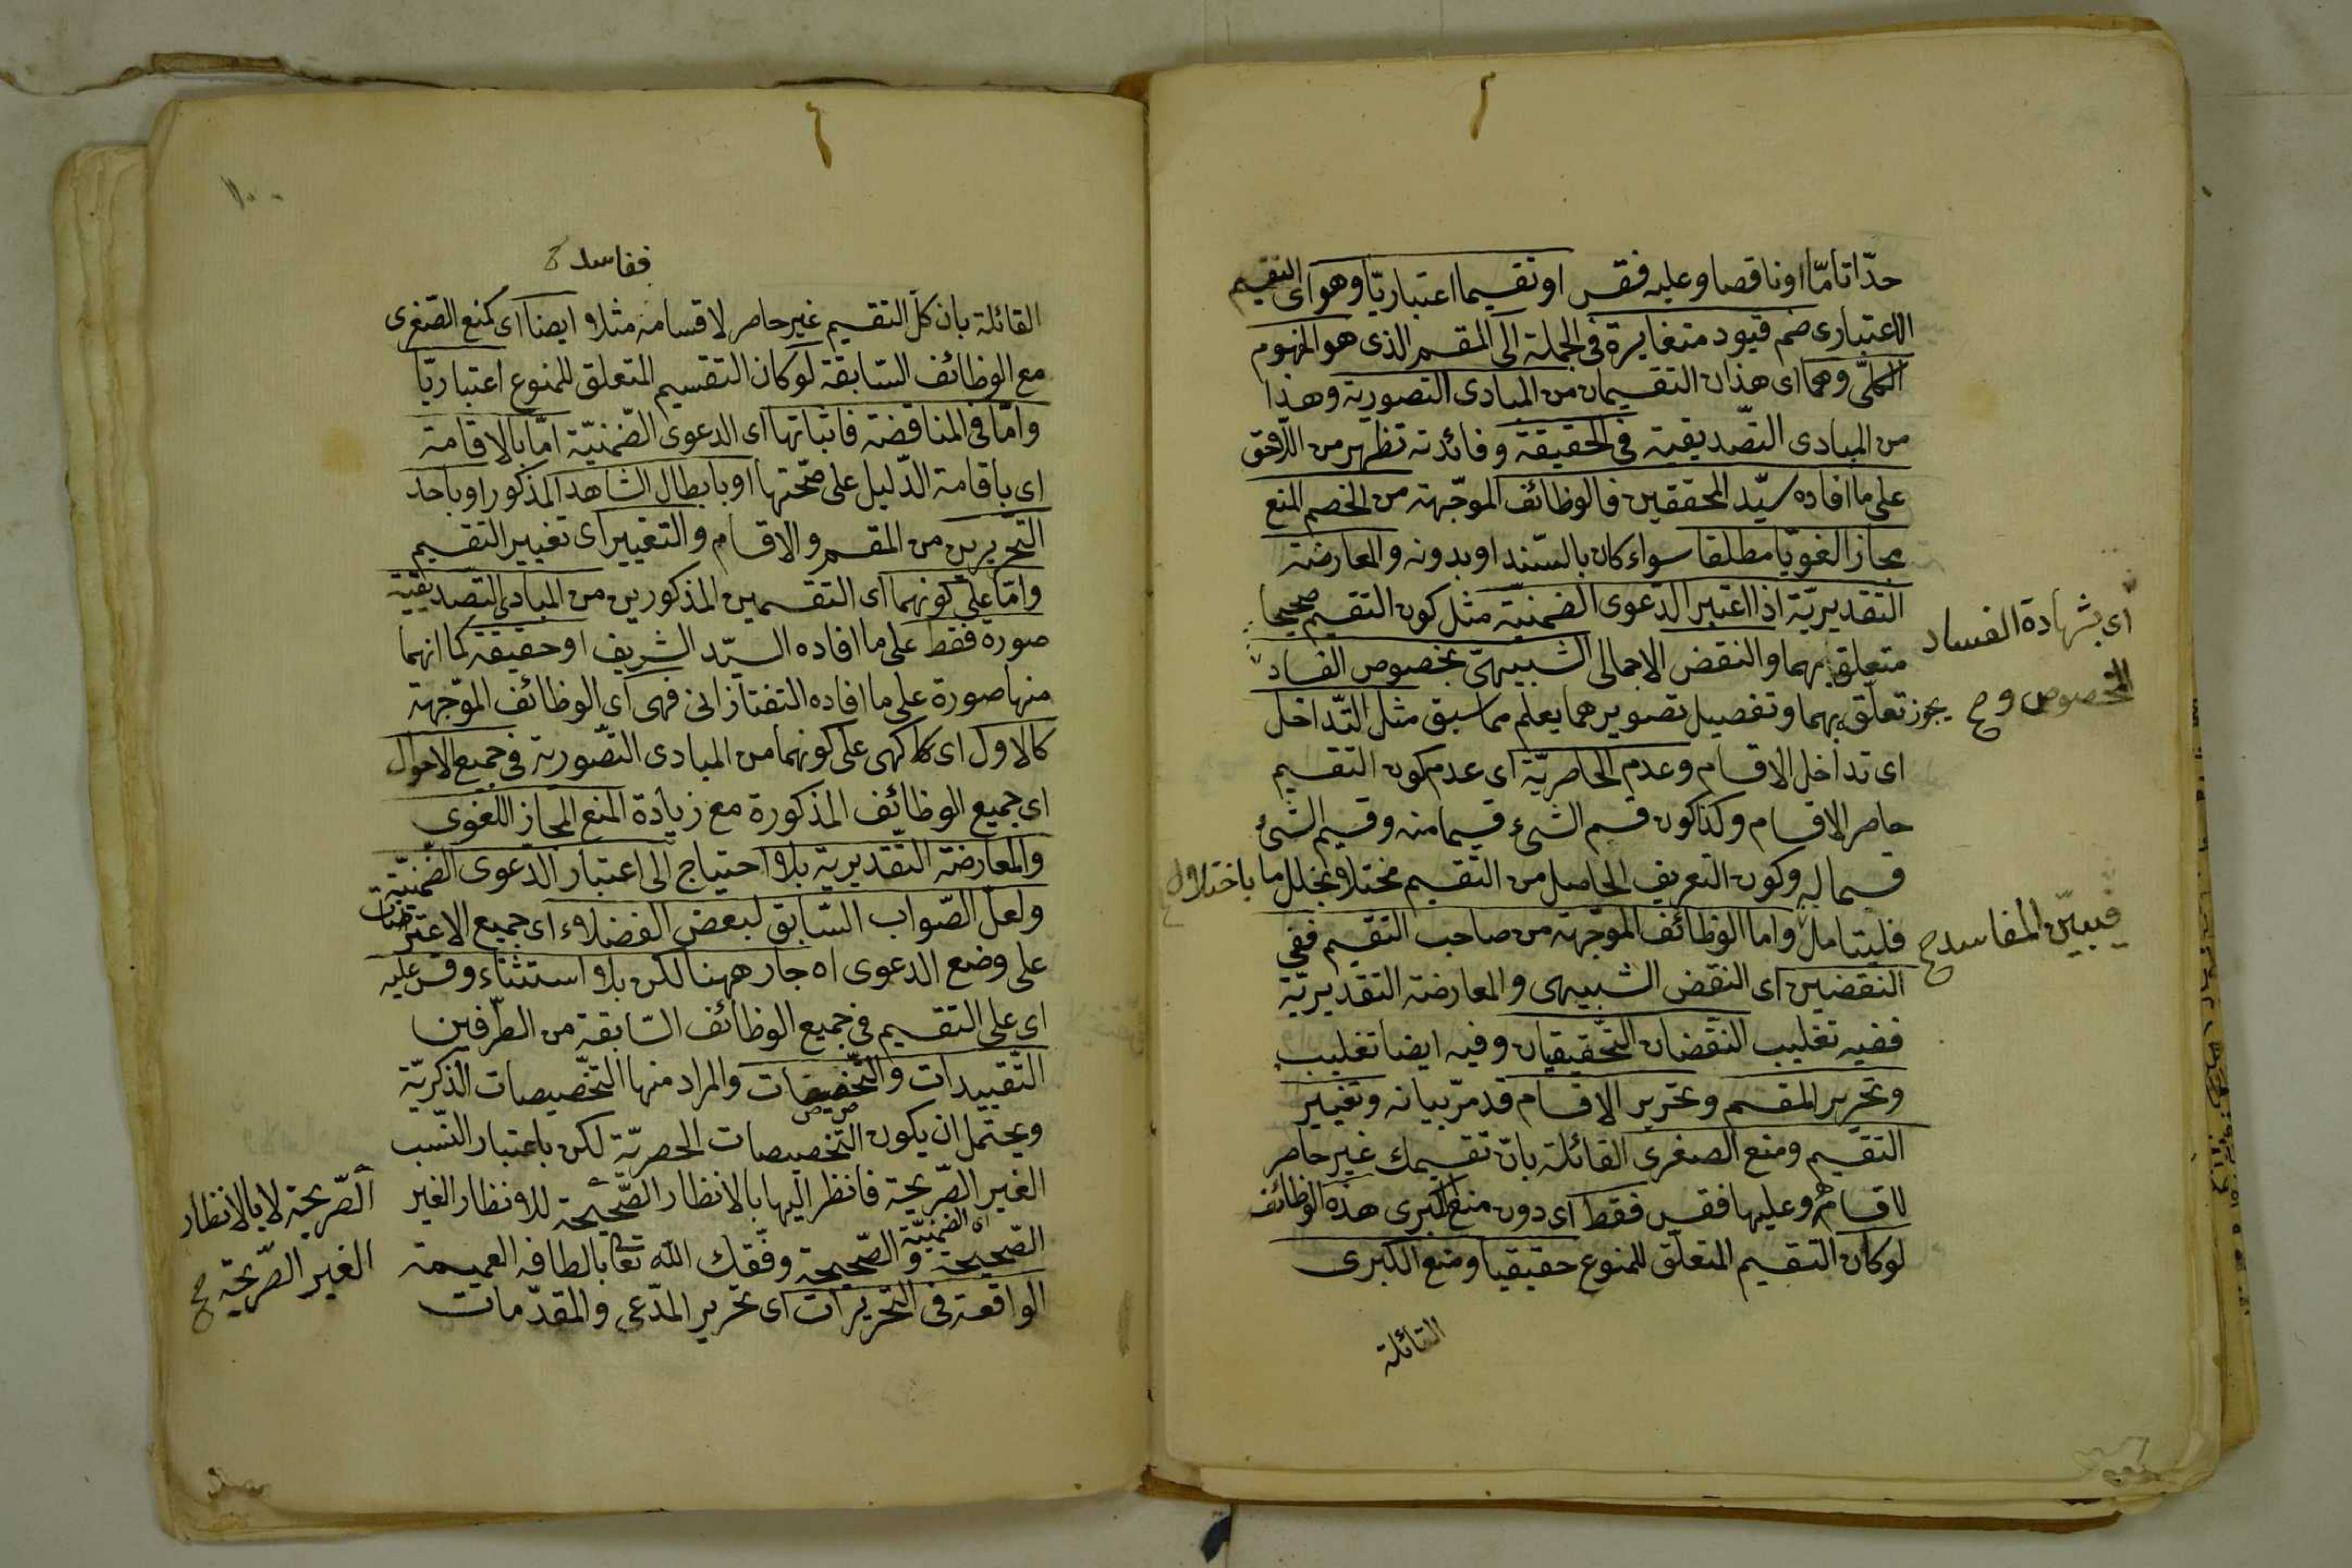 حدّا تامّا او ناقصا وعليه فقس او تقسيما اعتباريّا وهو اى التقسيم
الاعتبارى ضم قيود متغايرة فى الجملة الى المقسم الذى هو المفهوم
الكلىّ وهما اى هذان التقسيمان من المبادى التصورية وهذا
من المبادى التصّديقية فى الحقيقة وفائدته تظهر من اللّاحق
على ما افاده سيّد المحققين فالوظائف الموجّهة من الخصم المنع
مجازا لغويّا مطلقا سواء كان بالسّند او بدونه والمعارضة
التقديريّة اذا اعتبر الدّعوى الضمنيّة مثل كون التقسيم صحيحا
متعلق بهما والنقض الاجمالى الشبيهىّ بخصوص الفساد
اى بشهادة الفساد
المخصوص وح
يجوز تعلّق بهما وتفصيل تصويرهما يعلم مما سبق مثل التّداخل
اى تداخل الاقسام وعدم الحاصريّة اى عدم كون التقسيم
حاصر الاقسام وكذا كون قسم الشىء قسيما منه وقسيم الشىء
قسما له وكون التعريف الحاصل من التقسيم مختلا بخلل ما باختلال
فليتامل واما الوظائف الموجّهة من صاحب التقسيم ففى
فيبيّن المفاسد ح
النقضين اى النقض الشبيهى والمعارضة التقديريّة
ففيه تغليب النقضان التحّقيقيان وفيه ايضا تغليب
وتحرير المقسم وتحرير الاقسام قد مرّ بيانه وتغيير
التقسيم ومنع الصغرى القائلة بانّ تقسيمك غير حاصر
لاقسامه وعليها فقس فقط اى دون منع الكبرى هذه الوظائف
لو كان التقسيم المتعلّق للمنوع حقيقيا ومنع الكبرى
القائلة
ففاسد ح
القائلة بان كلّ التقسيم غير حاصر لاقسامه مثلا ايضا اى كمنع الصّغرى
مع الوظائف السّابقة لو كان التقسيم المتعلق للمنوع اعتباريّا
وامّا فى المناقضة فاثباتها اى الدعوى الضّمنيّة امّا بالاقامة
اى باقامة الدّليل على صحّتها او بابطال الشاهد المذكور او باحد
التحّريرين من المقسم والاقسام والتغيير اى تغيير التقسيم
وامّا على كونهما اى التقسمين المذكورين من المبادى التصّديقيّة
صورة فقط على ما افاده السيّد الشريف او حقيقة كما انهما
منها صورة على ما افاده التفتازانى فهى اى الوظائف الموّجهة
كالاول اى كا كهى على كونهما من المبادى التصّورية فى جميع الاحوال
اى جميع الوظائف المذكورة مع زيادة المنع المجاز اللغوى
والمعارضة التقّديرية بلا احتياج الى اعتبار الدعوى الضمنيّة
ولعلّ الصّواب السّابق لبعض الفضلاء اى جميع الاعتراضات
على وضع الدعوى اه جار ههنا لكن بلا استثناء وقس عليه
اى على التقسيم فى جميع الوظائف السّابقة من الطّرفين
التّقييدات والتّخصيصات والمراد منها التّخصيصات الذكريّة
ويحتمل ان يكون التّخصيصات الحصريّة لكن باعتبار النّسب
الغير الصّريحة فانظر اليها بالانظار الصّحيحة للانظار الغير
الصّريحة لا بالانظار
الغير الصّريحة صح
اى الضمنيّة
الصّحيحة والصّحيحة وفّقك اللّه تعا بالطافه العميمة
الواقعة فى التحّريرات اى تحرير المدّعى والمقدّمات